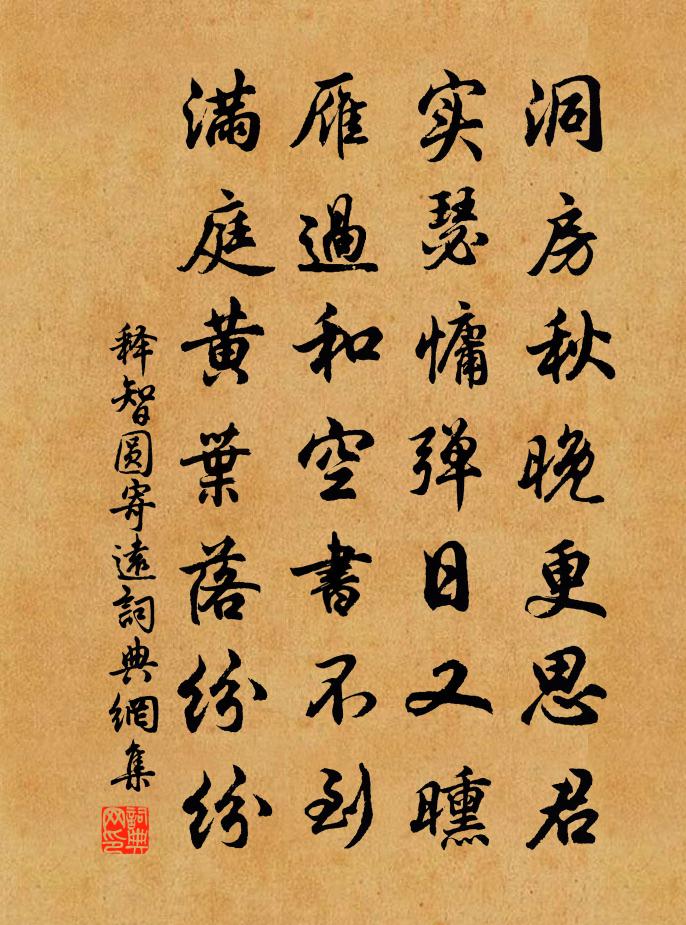 洞房秋晚更思君
实瑟慵弹日又曛
雁過和空書不到
滿庭黄葉落紛紛
释智圆寄遠詞典網集
詞典
网印